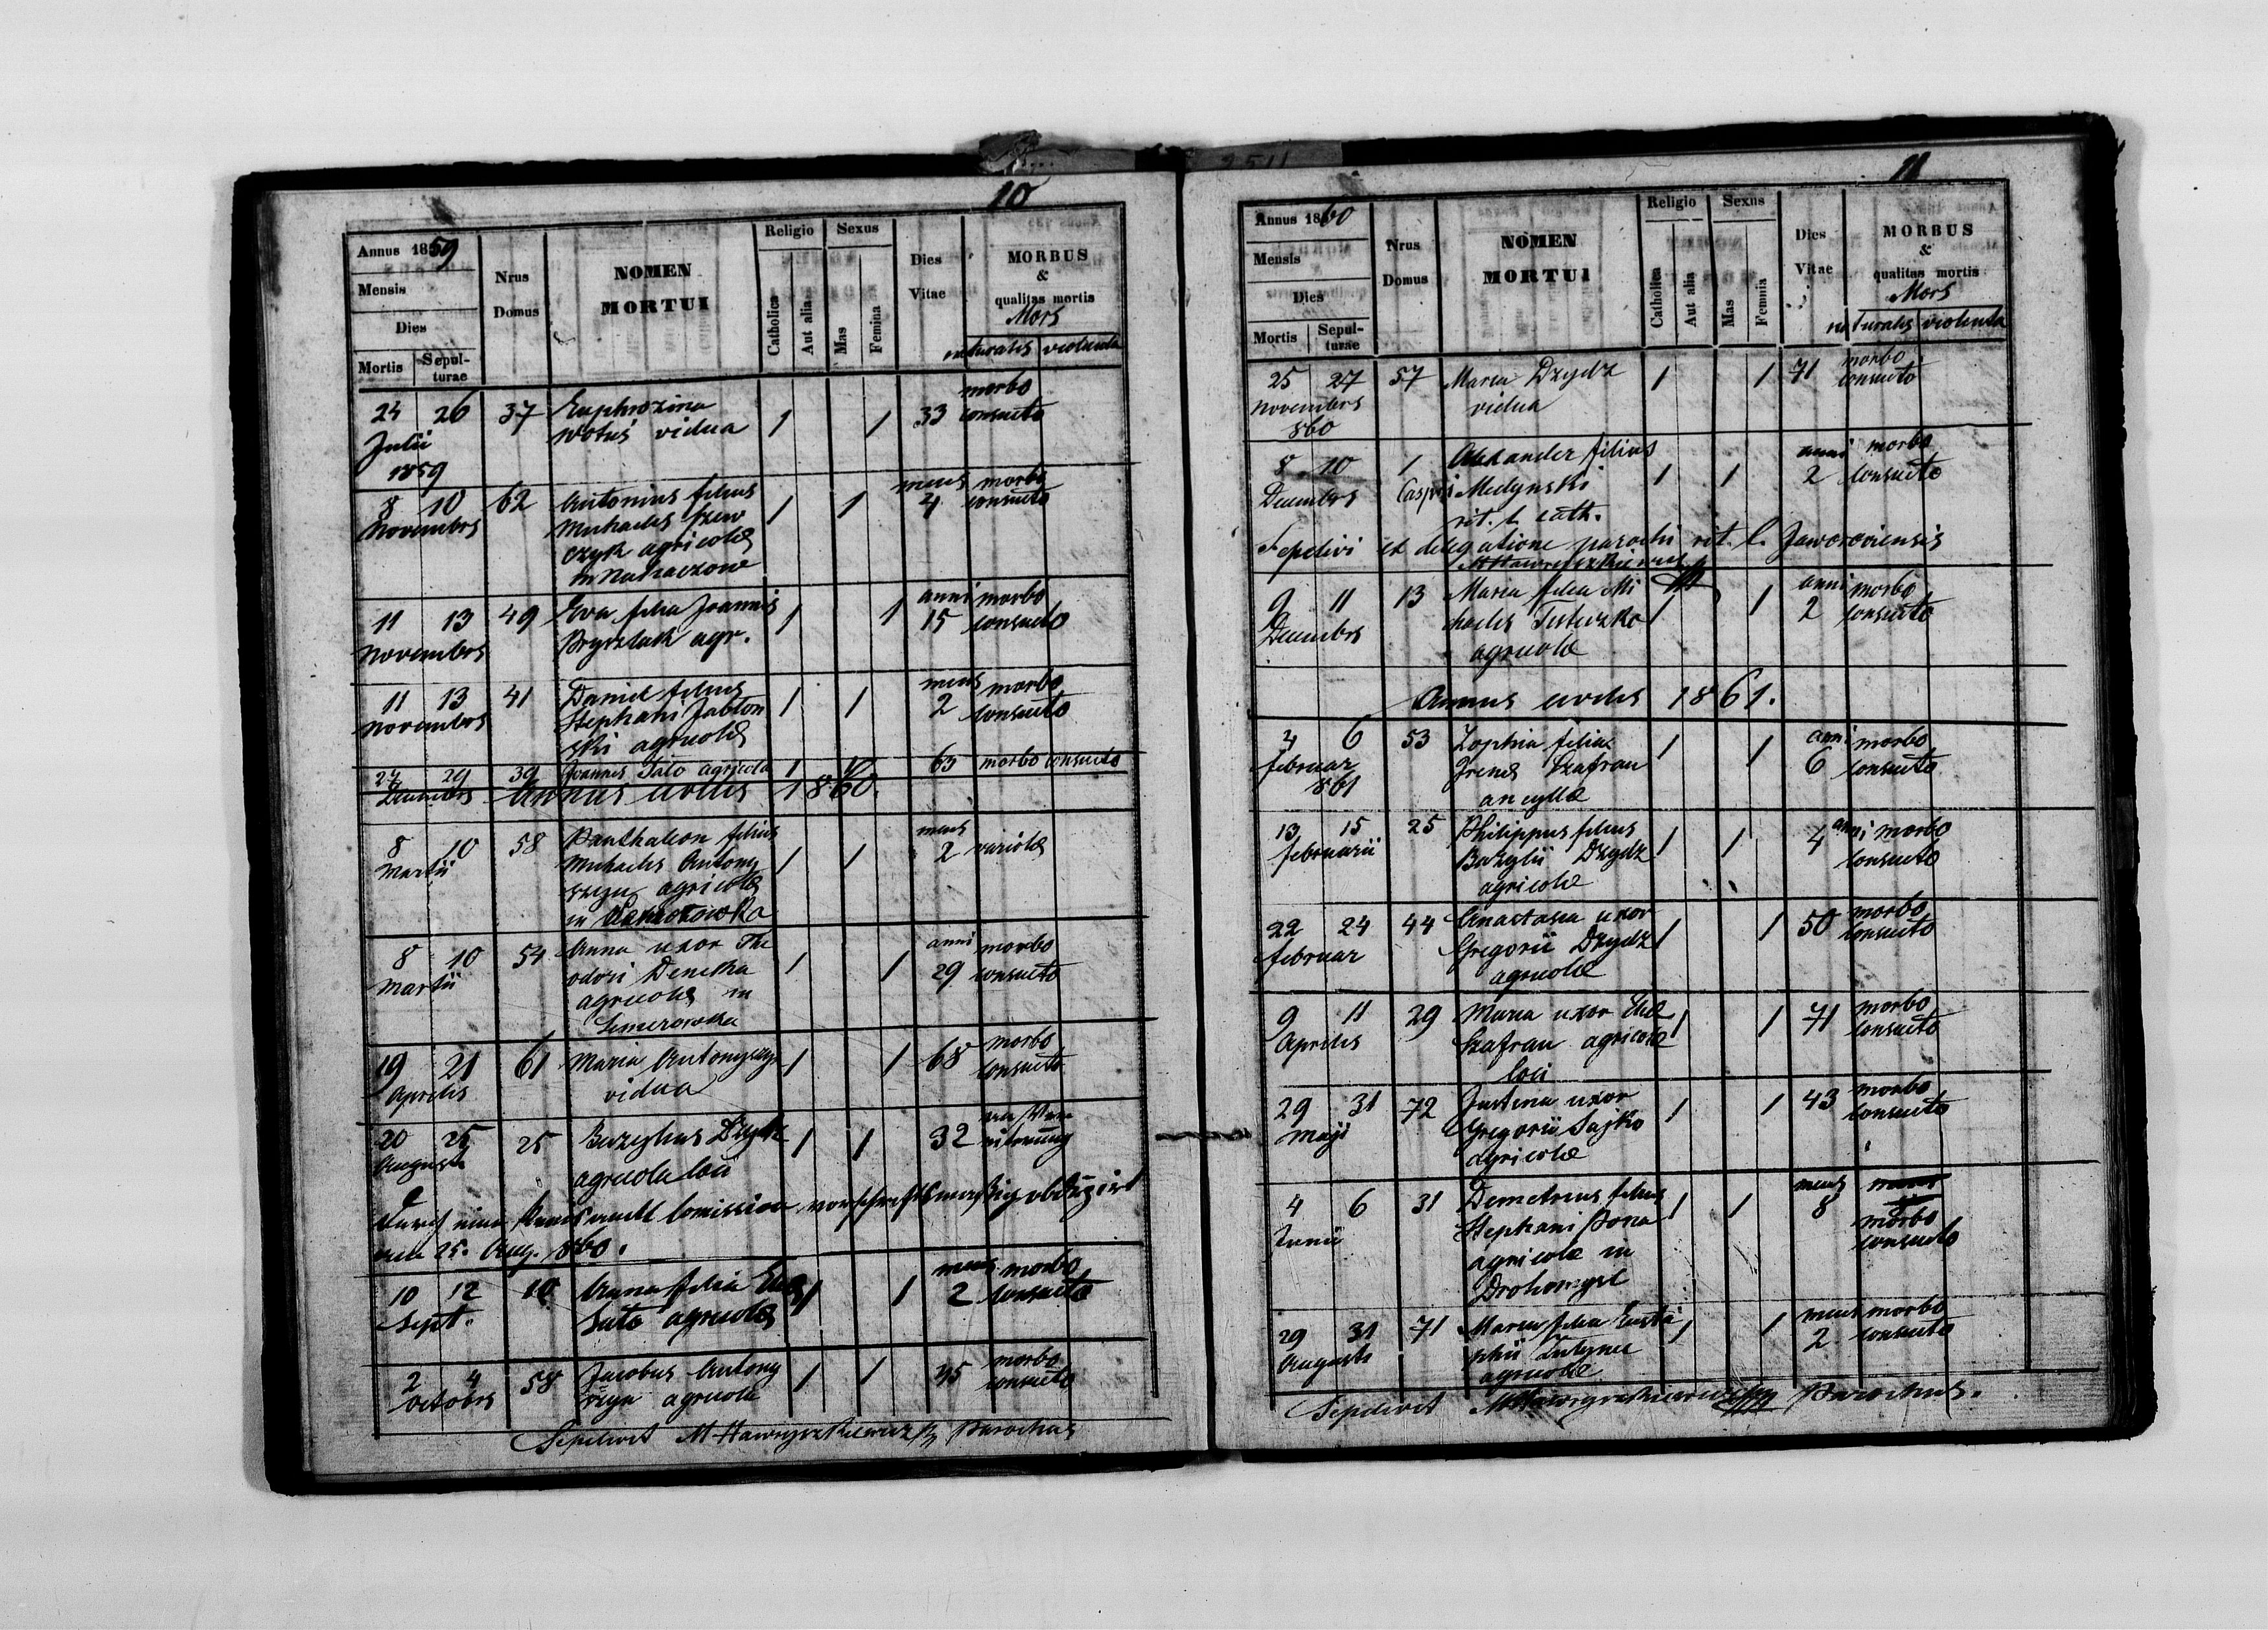 10
Annus 1859
Mensis
Dies
Mortis Sepulturae
Nrus Domus
NOMEN MORTUI
Religio
Catholica Aut alia
Sexus
Mas Femina
Dies Vitae
MORBUS & qualitas mortis
Mors
naturalis violenta
24 26 37 Euphrozina 1 1 33 morbo
Julii vidua consueto
1859
8 10 62 Antonius filius 1 1 mens morbo
Novembrs Michaelis Szew 4 consueto
czyk agricolæ
11 13 49 Eva filia Joannis 1 1 anni morbo
Novembrs agr. 15 consueto
11 13 41 Daniel filius 1 1 mens morbo
Novembrs Stephani Jablon 2 consueto
ski agricolæ
27 29 39 Joannes agricola 1 1 63 morbo consueto
Decembrs Annus 1860.
8 10 58 Panthaleon filius 1 1 mens
Martii Michaelis Antony 2 variolæ
szyn agricolæ
in
8 10 54 Anna uxor The 1 1 anni morbo
Martii odori 29 consueto
agricolæ in
19 21 61 Maria Antonyszyn 1 1 68 morbo
Aprilis vidua consueto
20 25 25 Bazylius Dzydz 1 1 32
Augusti agricola loci
25. Aug. 860.
10 12 10 Anna filia 1 1 mens morbo
Sept. agricolæ 2 consueto
2 4 58 Jacobus Antony 1 1 45 morbo
Octobrs szyn agricola consueto
Sepelivit M Hawryszkiewicz Parochus
11
Annus 1860
Mensis
Dies
Mortis Sepulturae
Nrus Domus
NOMEN MORTUI
Religio
Catholica Aut alia
Sexus
Mas Femnia
Dies Vitae
MORBUS & qualitas mortis
Mors
naturalis violenta
25 27 57 Maria Dzydz 1 1 71 morbo
Novembrs vidua consueto
860
8 10 1 Alexander filius 1 1 anni morbo
Decembrs Medynski 2 consueto
rit. l. cath.
Sepelivi ex delegatione parochi rit. l. Jaworoviensis
9 11 13 Maria filia Mi 1 1 anni morbo
Decembrs chaelis 2 consueto
agricolæ
Annus 1861.
4 6 53 Zophia filia 1 1 anni morbo
Februar Irenæ Szafran 6 consueto
861 ancyllæ
13 15 25 Philippus filius 1 1 4 anni morbo
Februarii Bazylii Dzydz consueto
agricolæ
22 24 44 Anastasia uxor 1 1 50 morbo
Februar Gregorii Dzydz consueto
agricolæ
9 11 29 Maria uxor Eliæ 1 1 71 morbo
Aprilis Szafran agricolæ consueto
loci
29 31 72 Justina uxor 1 1 43 morbo
Maji Gregorii Sajko consueto
agricolæ
4 6 31 Demetrius filius 1 1 mens
Junii Stephani 8 morbo
agricolæ in consueto
Drohomysl
29 31 71 Maria filia Eusta 1 1 mens morbo
Augusti chii 2 consueto
agricolæ
Sepelivit M Hawryszkiewicz Parochus.